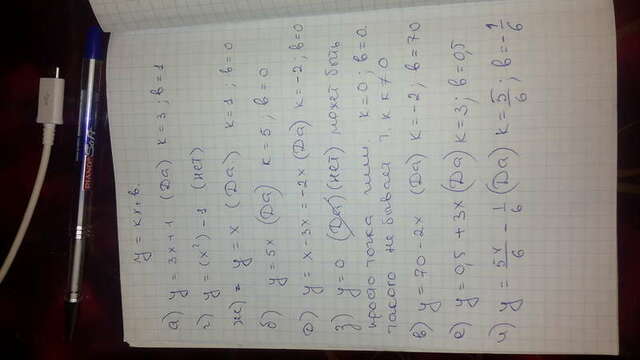 y = kx + b.
а) y = 3x + 1 (Да) k = 3 ; b = 1
г) y = (x²) - 1 (нет)
ж) y = x (Да) k = 1 ; b = 0
б) y = 5x (Да) k = 5 ; b = 0
д) y = x - 3x = -2x (Да) k = -2; b = 0
з) y = 0 (Да) (нет) может быть
просто точка или k = 0 ; b = 0.
такого не бывает т. к k ≠ 0
в) y = 70 - 2x (Да) k = -2 ; b = 70
е) y = 0,5 + 3x (Да) k = 3; b = 0,5
и) y = 5x/6 - 1/6 (Да) k = 5/6 ; b = -1/6
PIANO Soft